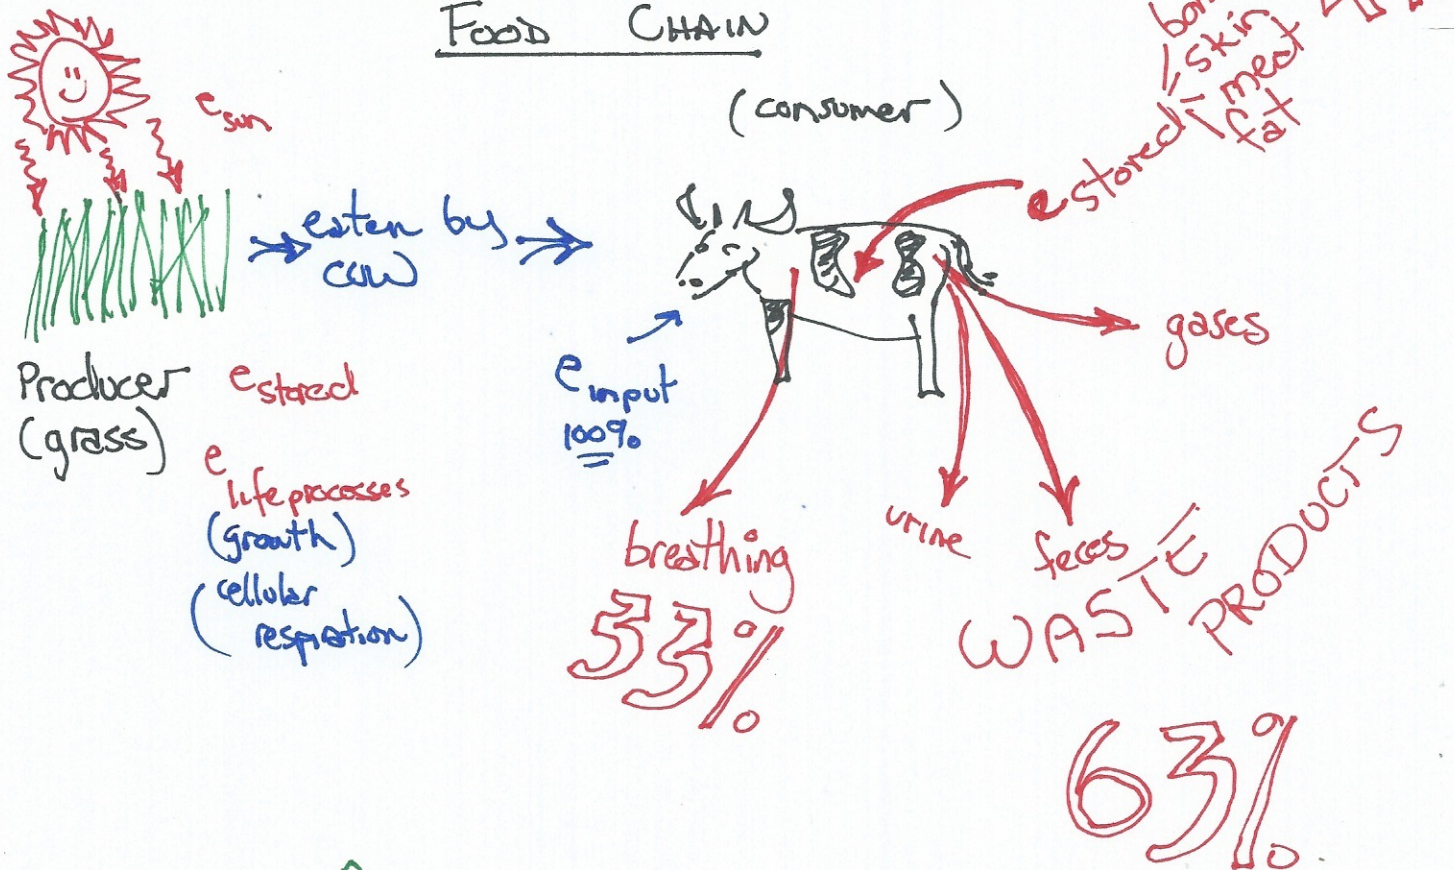 FOOD CHAIN
e sun
(consumer)
skin
meat
fat
e stored
eaten by
cow
Producer
(grass)
e stored
e
life processes
(growth)
(cellular
respiration)
e input
100%
gases
breathing
33%
urine
feces
WASTE
PRODUCTS
63%